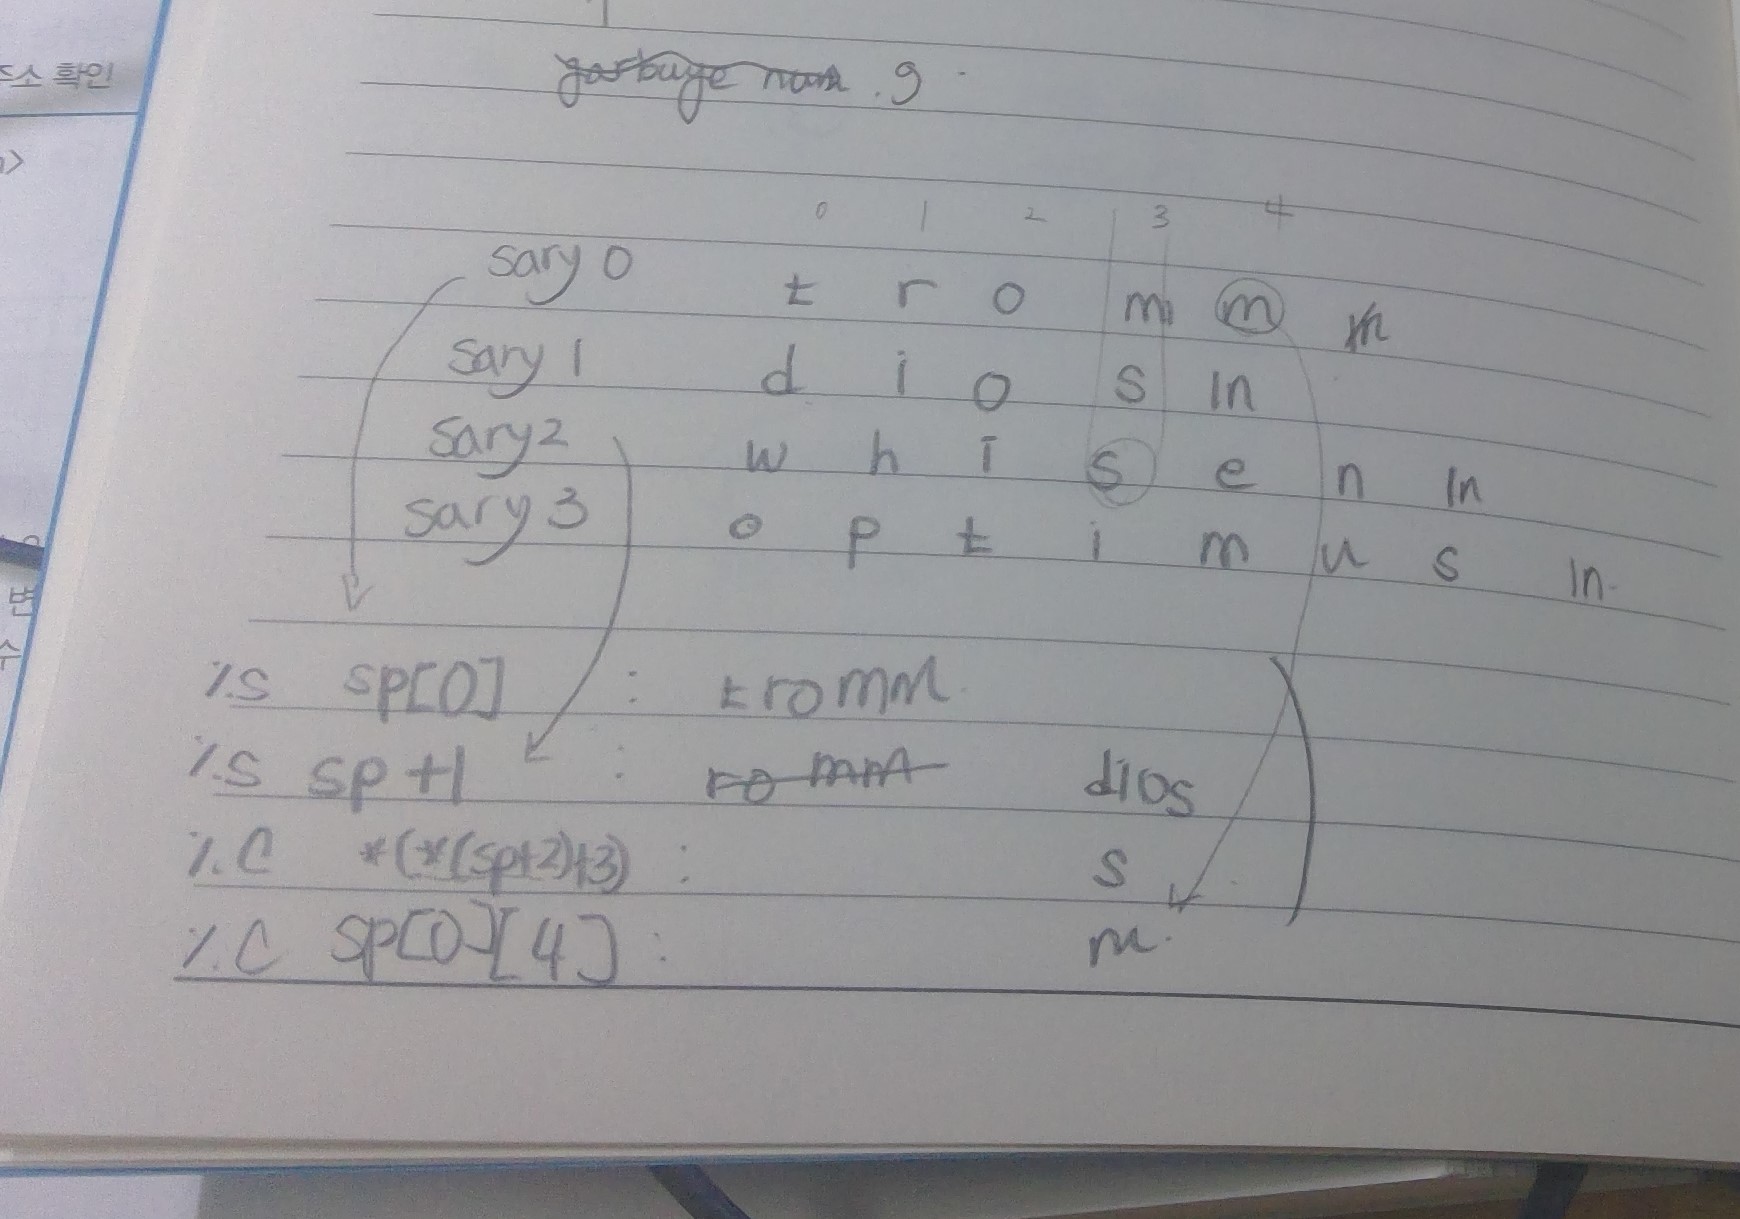 소 확인
.9
0 1 2 3 4
sary 0 t r o m m
sary 1 d i o s \n
sary 2 w h i s e n \n
sary 3 o p t i m u s \n
변
수
%s sp[0] : tromm
%s sp+1 : romm dios
%c *(*(sp+2)+3) : s
%c sp[0][4] : m.